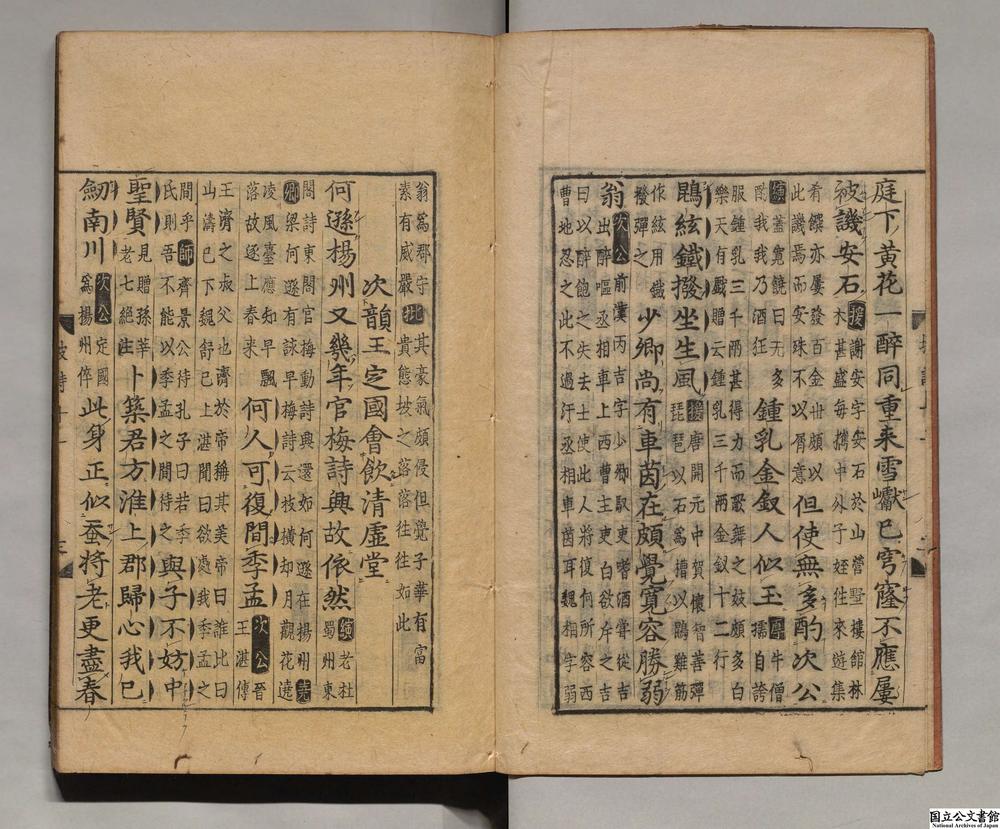 庭下黄花一醉同重来雪巘已穹窿不應屢
被譏安石援謝安字安石於山營墅樓館林
木甚盛每攜中外子姪往來遊集
肴饌亦屢發百金世頗以
此譏焉而安殊不以屑意但使無多酌次公
縯蓋寛饒曰无多
酌我我乃酒狂鍾乳金釵人似玉厚牛僧
孺自誇
服鍾乳三千兩甚得力而歌舞之妓頗多白
樂天有戲贈云鍾乳三千兩金釵十二行
鵾絃鐵撥坐生風援唐開元中賀懷智善彈
琵琶以石爲槽以鵾雞筋
作絃用鐵
撥彈之少卿尚有車茵在頗覺寬容勝弱
翁次公前漢丙吉字少卿馭吏嗜酒甞從吉
出醉嘔丞相車上西曹主吏白欲斥之吉
曰以醉飽之失去士使此人將復何所容西
曹地忍之此不過汙丞相車茵耳魏相字弱
翁爲郡守
素有威嚴批其豪氣頗侵但覺子華有富
貴態坡之落落往往如此
次韻王定國會飲清虛堂
何遜揚州又幾年官梅詩興故依然縯老杜
蜀州東
閣詩東閣官梅動詩興還如何遜在揚州堯
卿梁何遜有詠早梅詩云枝橫却月觀花遶
凌風臺應知早飄
落故逐上春来何人可復間季孟次公晉
王湛傳
王濟之叔父也濟於帝稱其美帝曰誰比曰
山濤已下魏舒已上湛聞曰欲處我季孟之
間乎師齊景公待孔子曰若季
氏則吾不能以季孟之間待之與子不妨中
聖賢見贈孫莘
老七絕注卜築君方淮上郡歸心我已
劒南川次公定國
爲揚州倅此身正似蚕將老更盡春
国立公文書館
National Archives of Japan